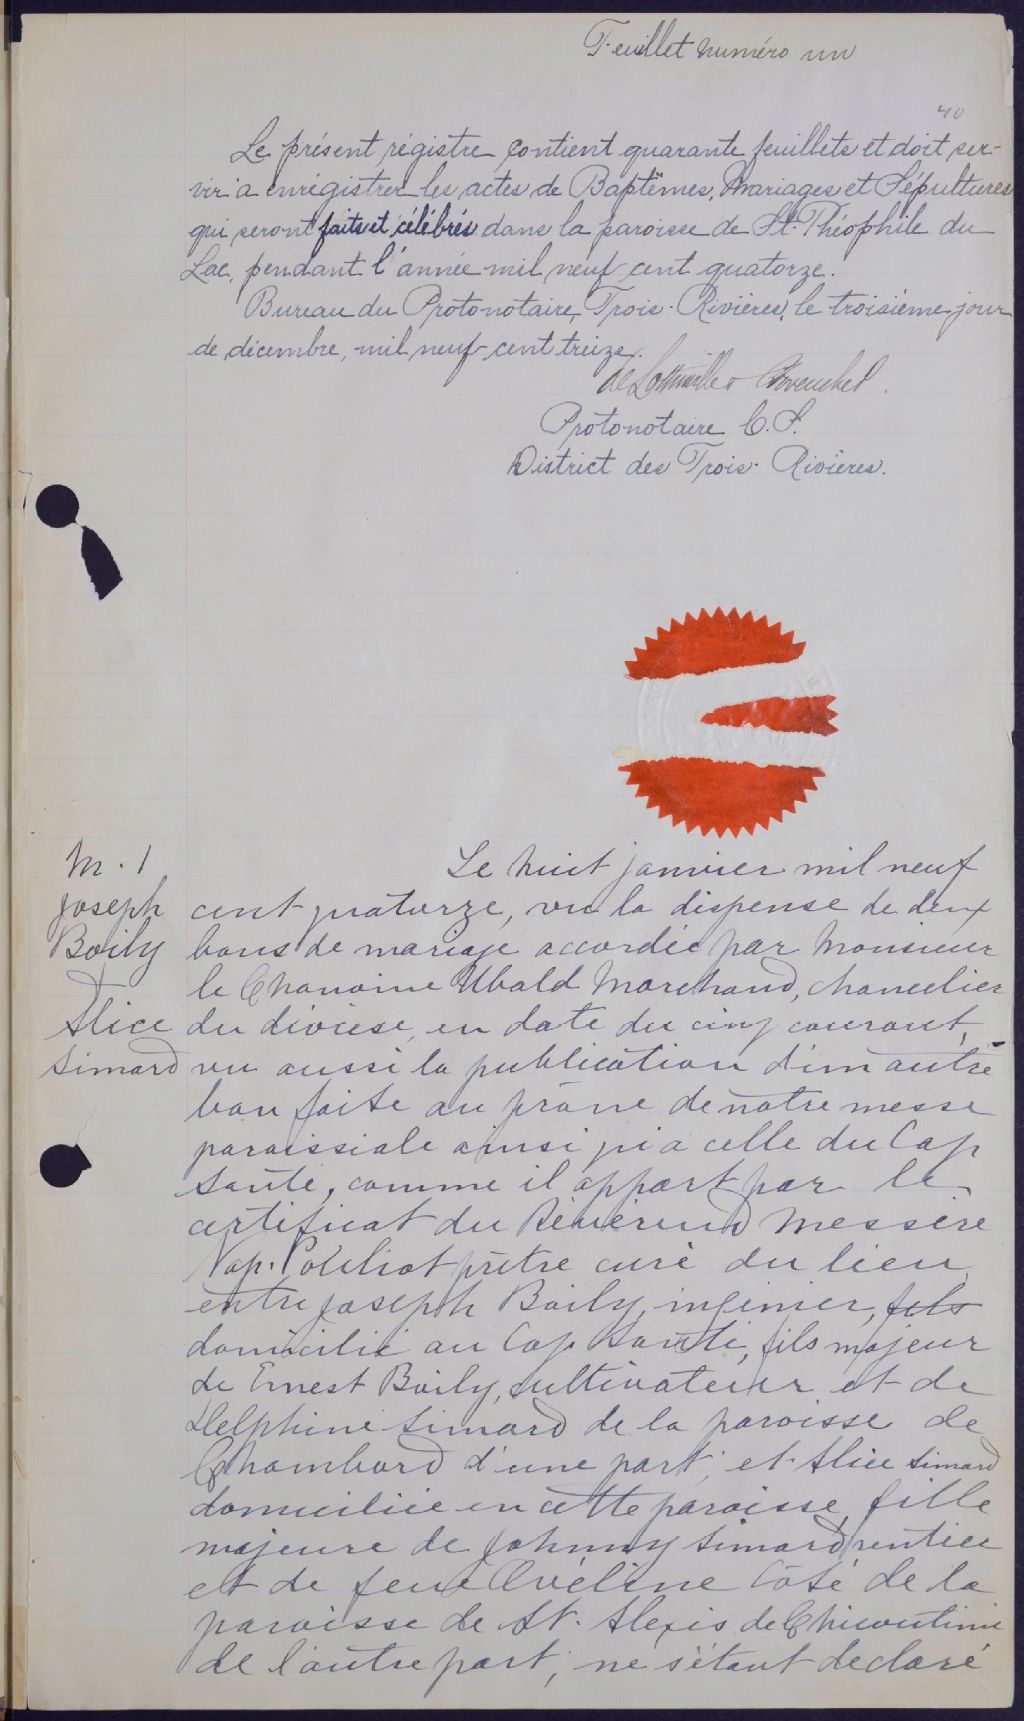 Feuillet numéro un
40
Le présent régistre contient quarante feuillets et doit ser-
vir à enrégistrer les actes de Baptêmes, Mariages et Sépultures
qui seront faits et célébrés dans la paroisse de St-Théophile du
Lac, pendant l'année mil neuf cent quatorze.
Bureau du Protonotaire, Trois-Rivières, le troisième jour
de décembre, mil neuf cent treize.
Protonotaire C.S.
District des Trois-Rivières.
M. 1
Joseph
Boily
Alice
Simard
Le huit janvier mil neuf
cent quatorze, vu la dispense de deux
bans de mariage accordée par Monsieur
le Chanoine Ubald Marchand, chancelier
du diocèse, en date du cinq courant,
vu aussi la publication d'un autre
ban faite au prône de notre messe
paroissiale ainsi qu'à celle du Cap
Santé, comme il appert par le
certificat du Révérend Messire
Nap. Pouliot prêtre curé du lieu,
entre Joseph Boily, ingénier, fils
domicilié au Cap Santé, fils majeur
de Ernest Boily, cultivateur et de
Delphine Simard de la paroisse de
Chambord d'une part; et Alice Simard
domiciliée en cette paroisse, fille
majeure de Johnny Simard rentier
et de feue Evéline Côté de la
paroisse de St. Alexis de Chicoutimi
de l'autre part; ne s'étant déclaré